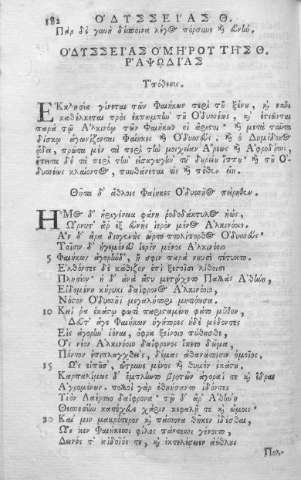 182 ὈΔΥΣΣΕΊΑΣ Θ.
Πὰρ δὲ γυνὴ δέσποινα λέχος πόρσυνε καὶ εὐνήν.
ὈΔΥΣΣΕΊΑΣ ὉΜΉΡΟΥ ΤΗΣ Θ.
ῬΑΨΩΔΊΑΣ
Ὑπόθεσις.
Ἐκκλησία γίνεται τῶν Φαιήκων περὶ τοῦ ξένου, καὶ ναῦς
καθέλκεται πρὸς ἐκπομπὴν τοῦ Ὀδυσσέως, καὶ ἑστιῶνται
παρὰ τῷ Ἀλκινόῳ τῶν Φαιήκων οἱ ἄριστοι· καὶ μετὰ ταῦτα
δίσκῳ ἀγωνίζονται Φαίηκες καὶ Ὀδυσσεύς. καὶ ὁ Δημόδοκος
ᾄδει, πρῶτα μὲν τὰ περὶ τῶν μοιχείαν Ἄρεως καὶ Ἀφροδίτης,
ἔπειτα δὲ τὰ περὶ τὴν εἰσαγωγὴν τοῦ δουρείου ἵππου· καὶ τοῦ Ὀδυσσέως
κλαίοντος, πυνθάνεται πόθεν εἴη.
Θῆτα δ' ἀέθλους Φαίηκες Ὀδυσσῆος πείρηθεν.
ἮΜος δ' ἠριγένεια φάνη ῥοδοδάκτυλος ἠώς,
Ὤρνυτ' ἄρ' ἐξ εὐνῆς ἱερὸν μένος Ἀλκινόοιο.
Ἂν δ' ἄρα διογενὴς ὦρτο πτολίπορθος Ὀδυσσεύς.
Τοῖσιν δ' ἡγεμόνευ' ἱερὸν μένος Ἀλκινόοιο
5 Φαιήκων ἀγορήνδ', ἥ σφιν παρὰ νηυσὶ τέτυκτο.
Ἐλθόντες δὲ κάθιζον ἐπὶ ξεστοῖσι λίθοισι
Πλησίον· ἡ δ' ἀνὰ ἄστυ μετῴχετο Παλλὰς Ἀθήνη,
Εἰδομένη κήρυκι δαΐφρονος Ἀλκινόοιο,
Νόστον Ὀδυσσῆϊ μεγαλήτορι μητιόωσα.
10 Καί ῥα ἑκάστῳ φωτὶ παρισταμένη φάτο μῦθον,
Δεῦτ' ἄγε Φαιήκων ἡγήτορες ἠδὲ μέδοντες
Εἰς ἀγορὴν ἰέναι, ὄφρα ξείνοιο πύθησθε,
Ὃς νέον Ἀλκινόοιο δαΐφρονος ἵκετο δῶμα,
Πόντον ἐπιπλαγχθεὶς, δέμας ἀθανάτοισιν ὁμοῖος.
15 Ὣς εἰποῦσ', ὤτρυνε μένος καὶ θυμὸν ἑκάστου.
Καρπαλίμως δ' ἔμπληντο βροτῶν ἀγοραί τε καὶ ἕδραι
Ἀγρομένων. πολλοὶ γὰρ ἐθηήσαντο ἰδόντες
Υἱὸν Λαέρταο δαΐφρονα· τῷ δ' ἄρ' Ἀθήνη
Θεσπεσίην κατέχευε χάριν κεφαλῇ τε καὶ ὤμοις·
30 Καί μιν μακρότερον καὶ πάσσονα θῆκεν ἰδέσθαι,
Ὥς κεν Φαιήκεσσι φίλος πάντεσσι γένοιτο,
Δεινός τ' αἰδοῖός τε, καὶ ἐκτελέσειεν ἀέθλους
Πολ-